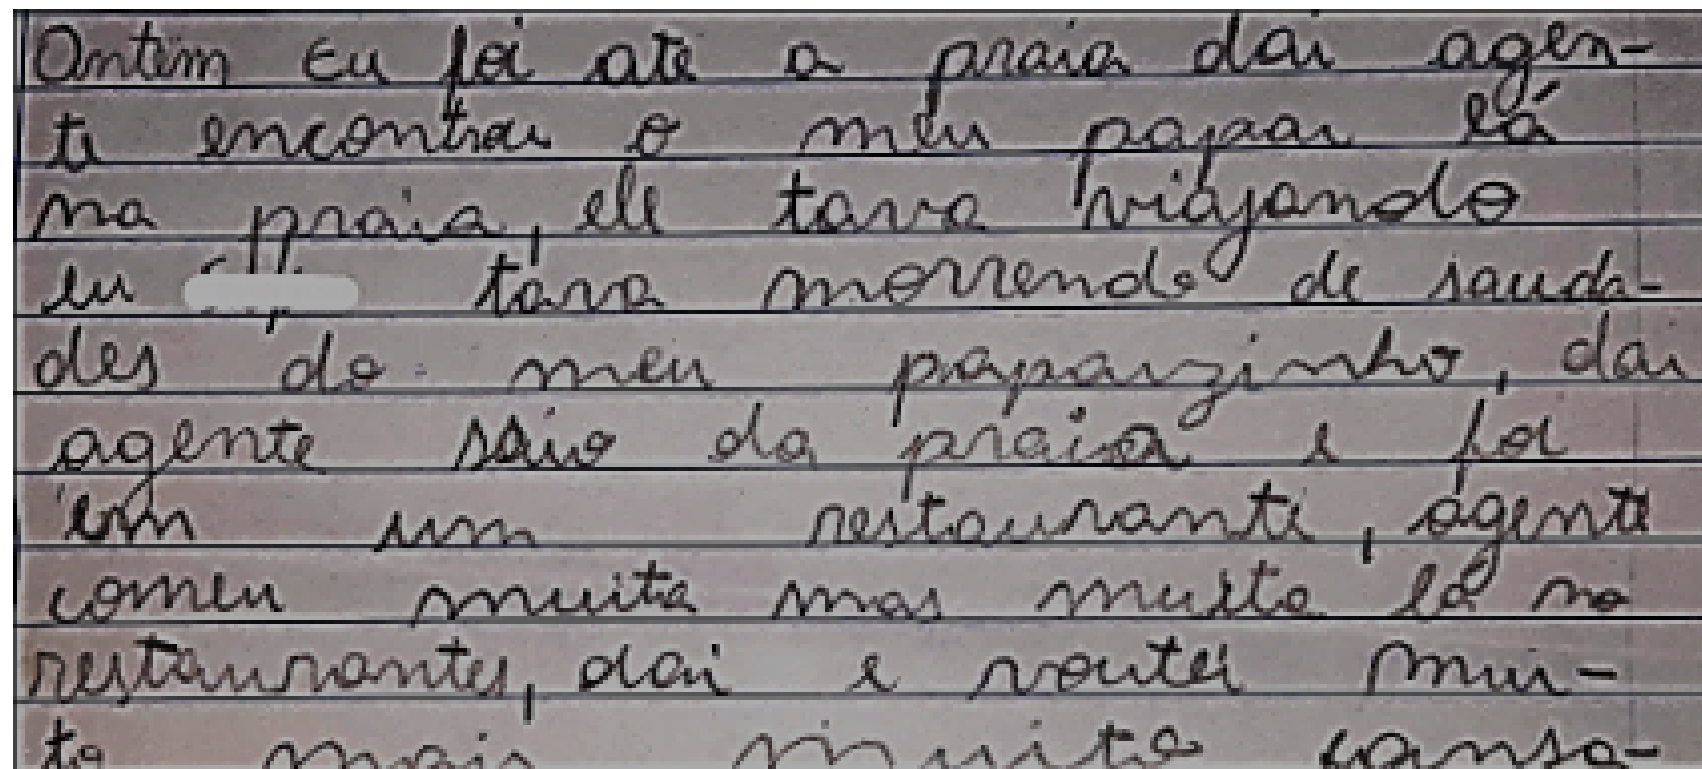 Ontem Eu foi ate a praia dai agen-
te encontrar o meu papai lá
na praia, ele tava viajando
eu tava morrendo de sauda-
des do meu papaizinho, dai
agente saio da praia e foi
em um restaurante, agente
comeu muito mas muito lá no
restaurantes, dai e voutei mui-
to mais muito cansa-